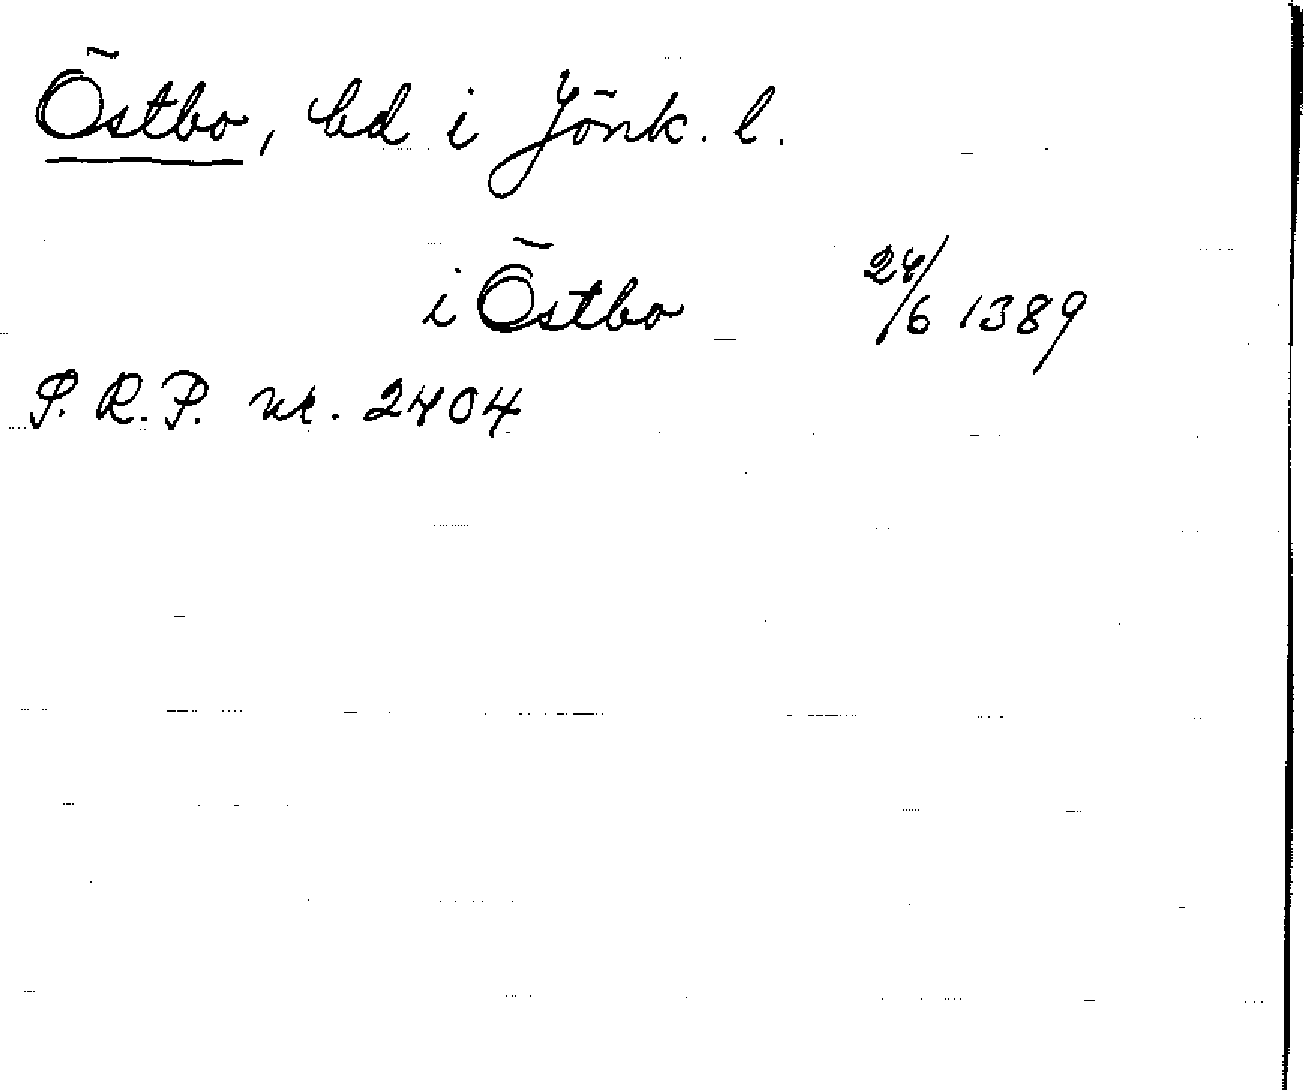 Östbo, hd i Jönk. l.
i Östbo 24/6 1389
P. R. P. nr. 2404